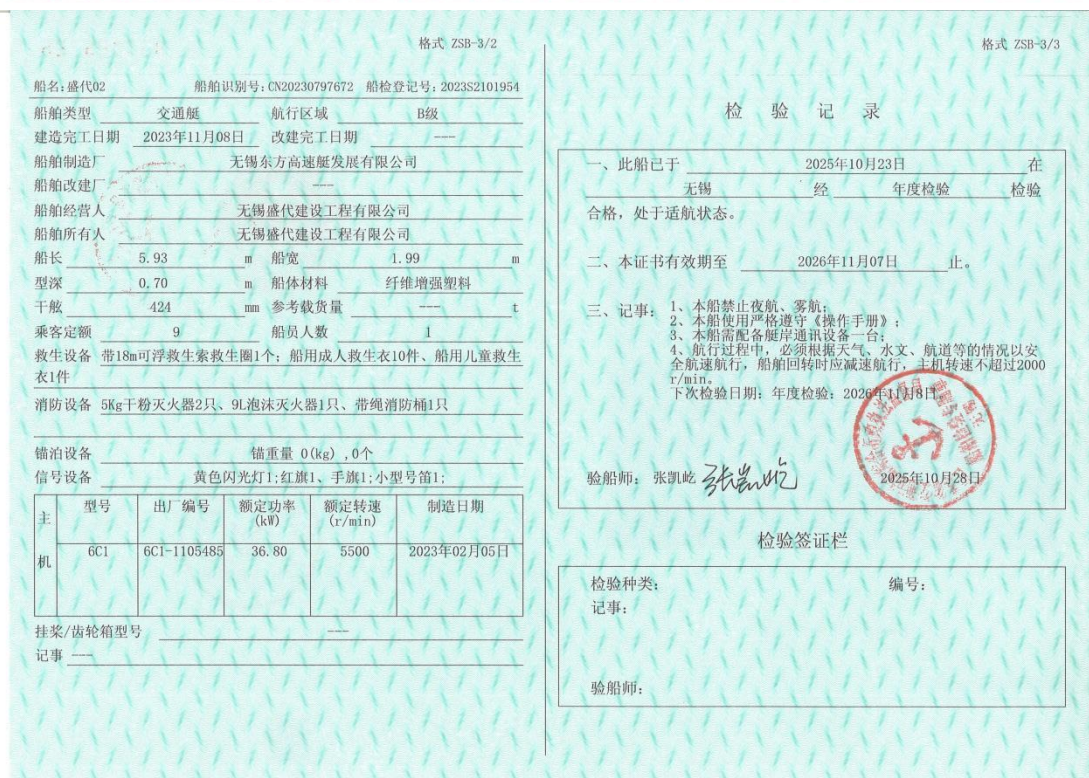 格式 ZSB-3/2
船名:盛代02 船舶识别号:CN20230797672 船检登记号:2023S2101954
船舶类型 交通艇 航行区域 B级
建造完工日期 2023年11月08日 改建完工日期 ---
船舶制造厂 无锡东方高速艇发展有限公司
船舶改建厂 ---
船舶经营人 无锡盛代建设工程有限公司
船舶所有人 无锡盛代建设工程有限公司
船长 5.93 m 船宽 1.99 m
型深 0.70 m 船体材料 纤维增强塑料
干舷 424 mm 参考载货量 --- t
乘客定额 9 船员人数 1
救生设备 带18m可浮救生索救生圈1个；船用成人救生衣10件、船用儿童救生
衣1件
消防设备 5Kg干粉灭火器2只、9L泡沫灭火器1只、带绳消防桶1只
锚泊设备 锚重量 0(kg) ,0个
信号设备 黄色闪光灯1;红旗1、手旗1;小型号笛1;
主机 型号 出厂编号 额定功率(kW) 额定转速(r/min) 制造日期
6C1 6C1-1105485 36.80 5500 2023年02月05日
挂桨/齿轮箱型号 ---
记事 ---
格式 ZSB-3/3
检 验 记 录
一、此船已于 2025年10月23日 在
无锡 经 年度检验 检验
合格，处于适航状态。
二、本证书有效期至 2026年11月07日 止。
三、记事： 1、本船禁止夜航、雾航；
2、本船使用严格遵守《操作手册》；
3、本船需配备艇岸通讯设备一台；
4、航行过程中，必须根据天气、水文、航道等的情况以安
全航速航行，船舶回转时应减速航行，主机转速不超过2000
r/min。
下次检验日期：年度检验：2026年11月8日
验船师： 张凯屹 张凯屹
2025年10月28日
检验签证栏
检验种类： 编号：
记事：
验船师：